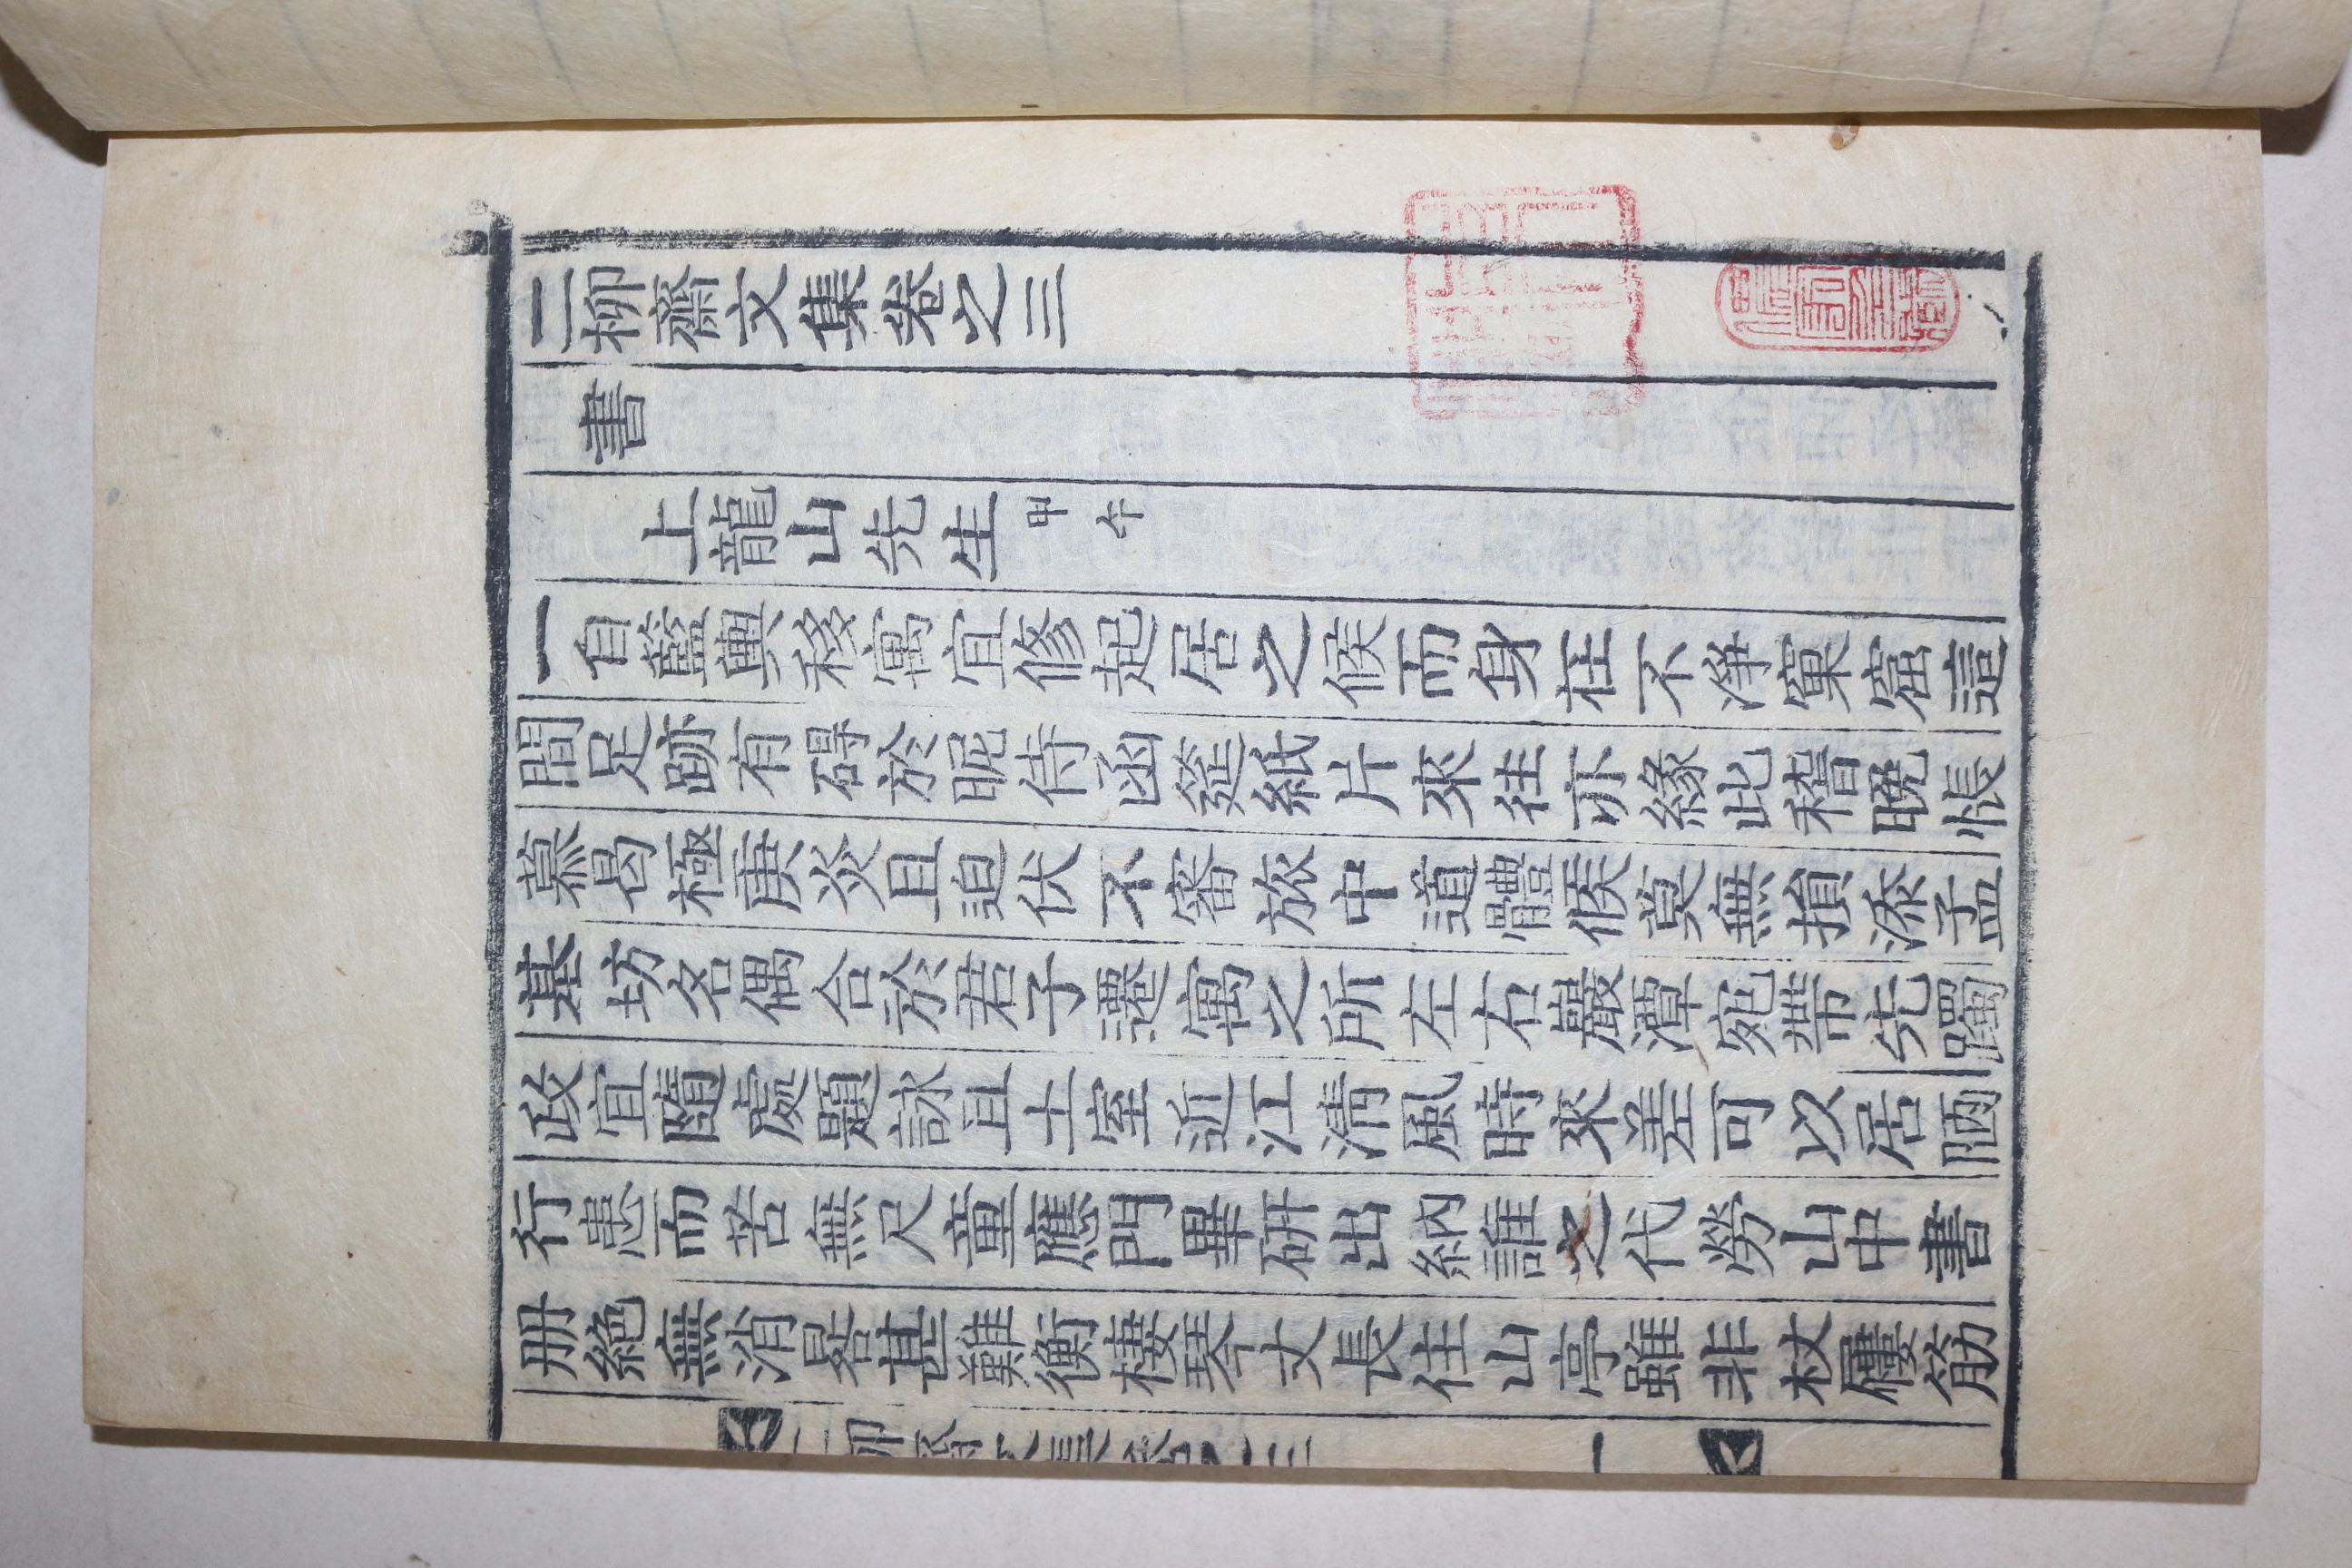 二柳齋文集卷之三
書
上龍山先生 甲午
一自籃輿移寓宜修起居之候而身在不淨窠窟這
間足跡有碍於昵侍函筵紙片來往亦緣此稽晩悵
慕曷極庚炎且迫伏不審旅中道體候莫無損添孟
基坊名偶合於君子遷寓之所左右巖潭宛帶先躅
政宜隨處題詠且土室近江淸風時來差可以居陋
行患而苦無尺童應門畢硏出納誰之代勞山中書
册絕無消晷甚難衡棲琴丈長住山亭雖非杖屨筋
二柳齋文集卷之三 一